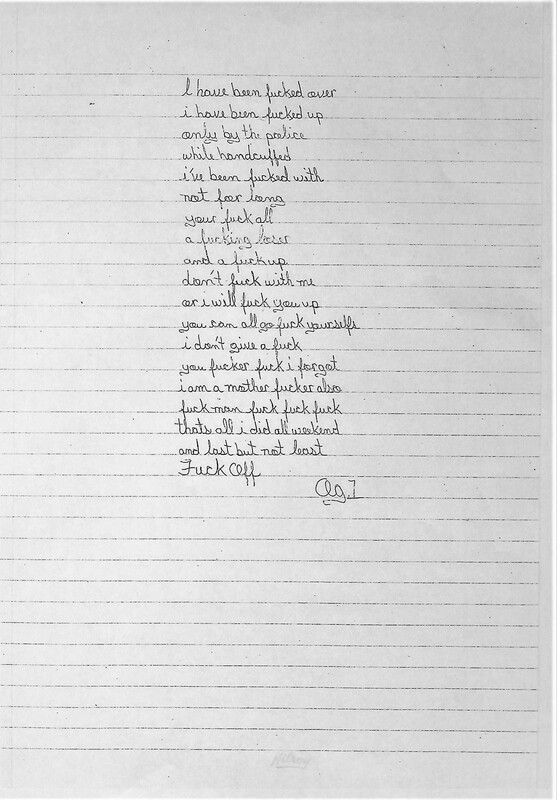 I have been fucked over
i have been fucked up
only by the police
while handcuffed
i've been fucked with
not for long
your fuck all
a fucking loser
and a fuck up
don't fuck with me
or i will fuck you up
you can all go fuck yourselfs
i don't give a fuck
you fucker fuck i forgot
i am a mother fucker also
fuck man fuck fuck fuck
thats all i did all weekend
and last but not least
Fuck Off